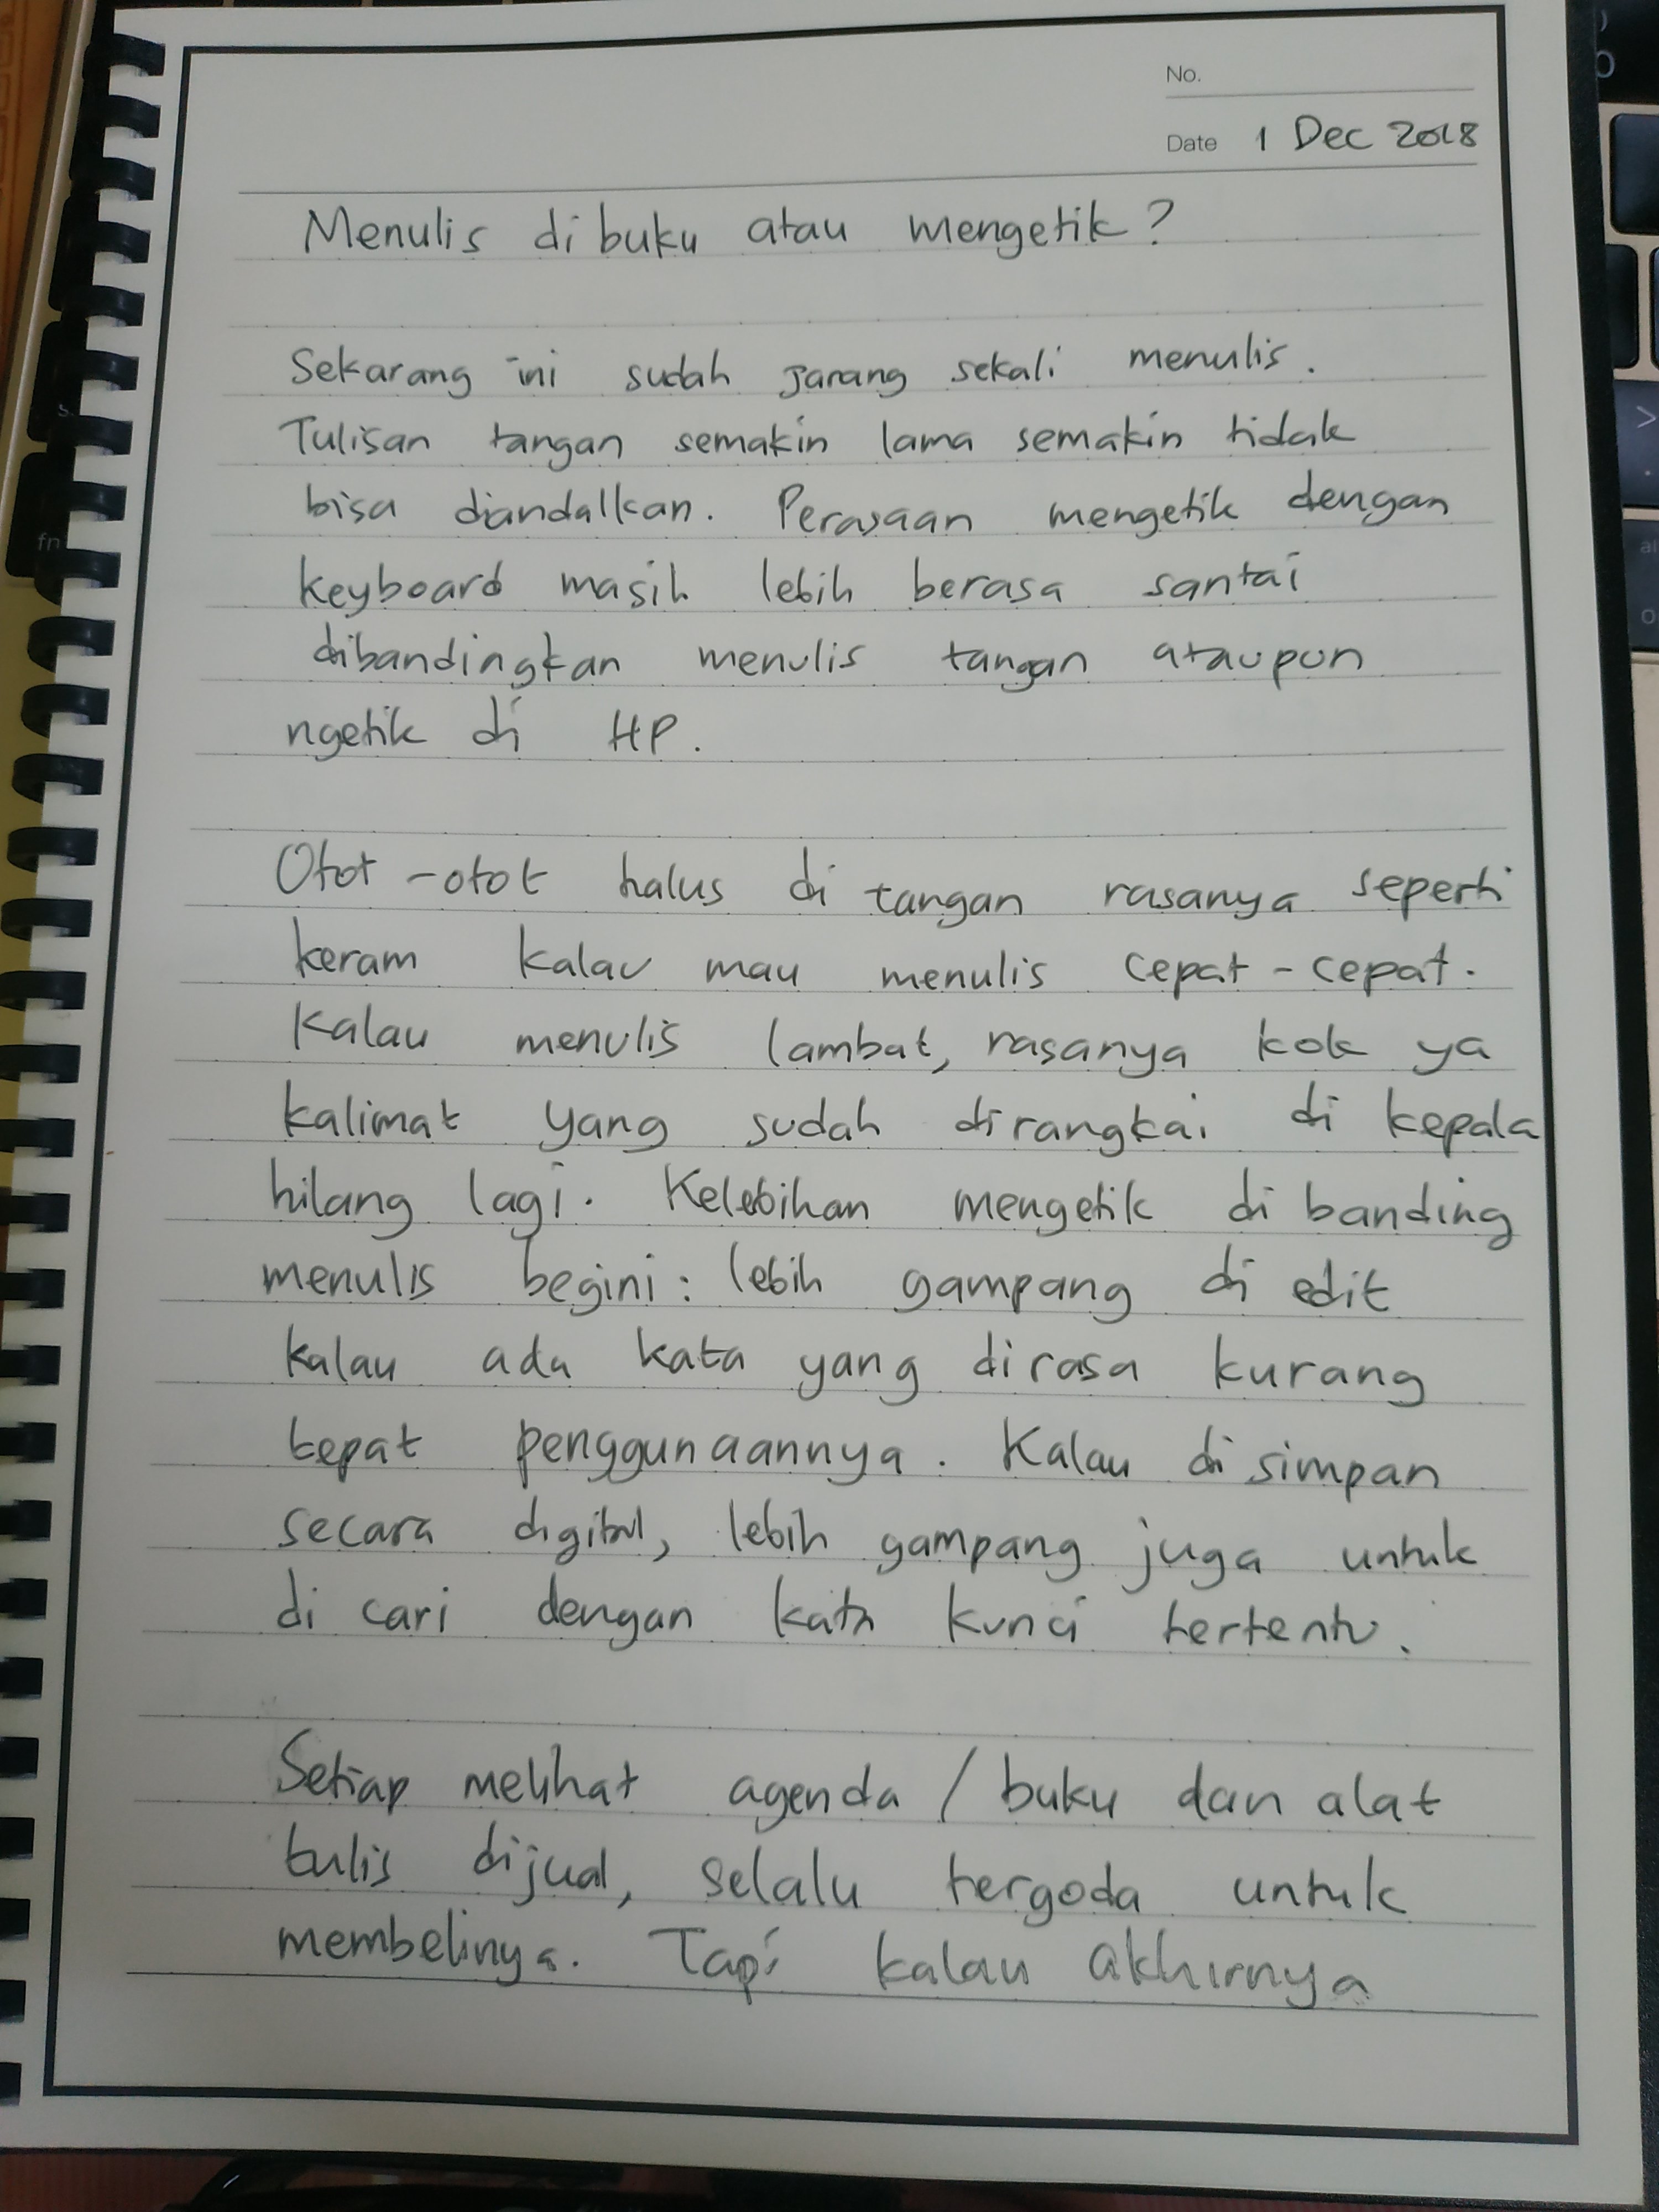 No.
Date 1 Dec 2018
Menulis di buku atau mengetik?
Sekarang ini sudah jarang sekali menulis.
Tulisan tangan semakin lama semakin tidak
bisa diandalkan. Perasaan mengetik dengan
keyboard masih lebih berasa santai
dibandingkan menulis tangan ataupun
ngetik di HP.
Otot-otot halus di tangan rasanya seperti
keram kalau mau menulis cepat-cepat.
Kalau menulis lambat, rasanya kok ya
kalimat yang sudah dirangkai di kepala
hilang lagi. Kelebihan mengetik di banding
menulis begini: lebih gampang di edit
kalau ada kata yang dirasa kurang
tepat penggunaannya. Kalau di simpan
secara digital, lebih gampang juga untuk
di cari dengan kata kunci tertentu.
Setiap melihat agenda / buku dan alat
tulis dijual, selalu tergoda untuk
membelinya. Tapi kalau akhirnya
fn